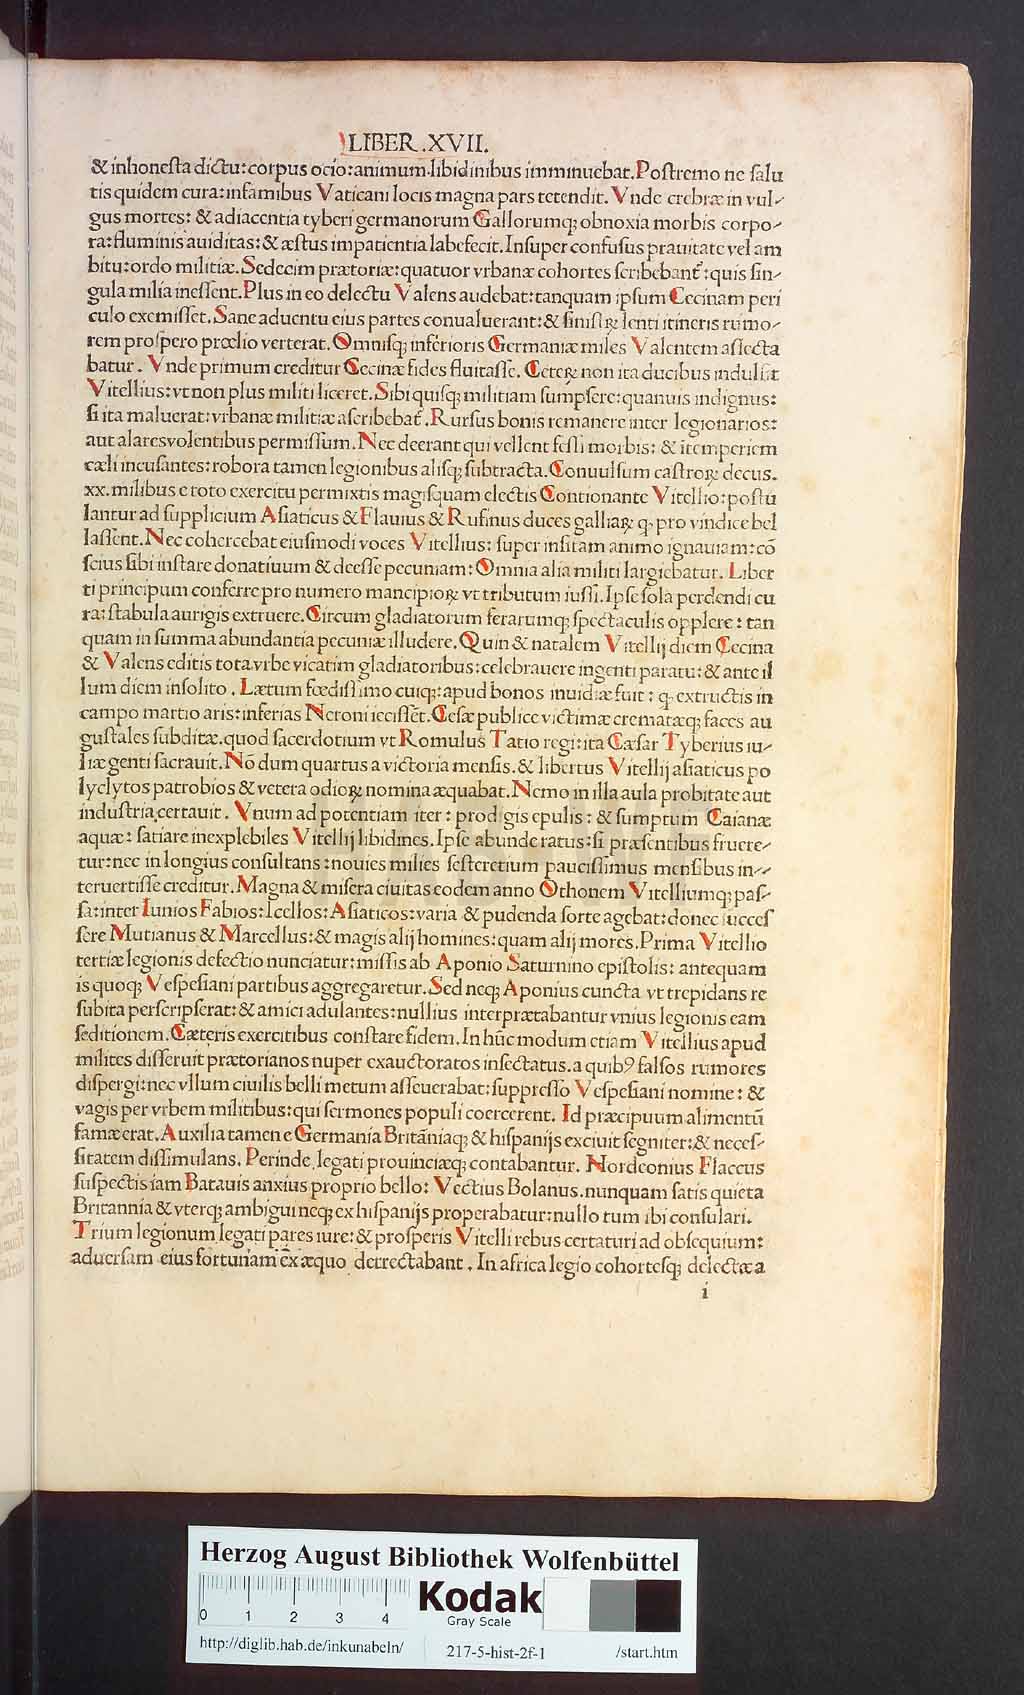 LIBER .XVII.
& inhonesta dictu: corpus ocio: animum libidinibus imminuebat. Postremo ne salu
tis quidem cura: infamibus Vaticani locis magna pars tetendit. Vnde crebræ in vul-
gus mortes: & adiacentia tyberi germanorum Gallorumq; obnoxia morbis corpo-
ra: fluminis auiditas: & æstus impatientia labefecit. Insuper confusus prauitate vel am
bitu: ordo militiæ. Sedecim prætoriæ: quatuor vrbanæ cohortes scribebant̄: quis sin-
gula milia inessent. Plus in eo delectu Valens audebat: tanquam ipsum Cecinam peri
culo exemisset. Sane aduentu eius partes conualuerant: & sinistrꝝ lenti itineris rumo-
rem prospero prœlio verterat. Omnisq; inferioris Germaniæ miles Valentem asſecta
batur . Vnde primum creditur Cecinæ fides fluitasse. Ceterꝝ non ita ducibus indulsit
Vitellius: vt non plus militi liceret. Sibi quisq; militiam sumpsere: quanuis indignus:
si ita maluerat: vrbanæ militiæ ascribebat̄. Rursus bonis remanere inter legionarios:
aut alares volentibus permissum. Nec deerant qui vellent fessi morbis: & itemperiem
cæli incusantes: robora tamen legionibus alisq; subtracta. Conuulsum castrorꝝ decus.
xx. milibus e toto exercitu permixtis magis quam electis Contionante Vitellio: postu
lantur ad supplicium Asiaticus & Flauius & Rufinus duces galliaꝝ q̨ pro vindice bel
lassent. Nec cohercebat eiusmodi voces Vitellius: super insitam animo ignauiam: cō
scius sibi instare donatiuum & deesse pecuniam: Omnia alia militi largiebatur. Liber
ti principum conferre pro numero mancipioꝝ vt tributum iussi. Ipse sola perdendi cu
ra: stabula aurigis extruere. Circum gladiatorum ferarumq; spectaculis opplere: tan
quam in summa abundantia pecuniæ illudere. Quin & natalem Vitellij diem Cecina
& Valens editis tota vrbe vicatim gladiatoribus: celebrauere ingenti paratu: & ante il
lum diem insolito . Lætum fœdissimo cuiq;: apud bonos inuidiæ fuit: q̨ extructis in
campo martio aris: inferias Neroni iecisset. Cesæ publice victimæ crematæq; faces au
gustales subditæ. quod sacerdotium vt Romulus Tatio regi: ita Cæsar Tyberius iu-
liæ genti sacrauit. Nō dum quartus a victoria mensis. & libertus Vitellij asiaticus po
lyclytos patrobios & vetera odioꝝ nomina æquabat. Nemo in illa aula probitate aut
industria certauit. Vnum ad potentiam iter: prodigis epulis: & sumptum Caianæ
aquæ: satiare inexplebiles Vitellij libidines. Ipse abunde ratus: si præsentibus fruere-
tur: nec in longius consultans: nouies milies sestertium paucissimus mensibus in--
teruertisse creditur. Magna & misera ciuitas eodem anno Othonem Vitelliumq; pas-
sa: inter Iunios Fabios: Icellos: Asiaticos: varia & pudenda sorte agebat: donec succes
sere Mutianus & Marcellus: & magis alij homines: quam alij mores. Prima Vitellio
tertiæ legionis defectio nunciatur: missis ab Aponio Saturnino epistolis: antequam
is quoq; Vespesiani partibus aggregaretur. Sed neq; Aponius cuncta vt trepidans re
subita perscripserat: & amici adulantes: nullius interprætabantur vnius legionis eam
seditionem. Cæteris exercitibus constare fidem. In hūc modum etiam Vitellius apud
milites disseruit prætorianos nuper exauctoratos insectatus. a quibꝰ falsos rumores
dispergi: nec vllum ciuilis belli metum asseuerabat: suppresso Vespesiani nomine: &
vagis per vrbem militibus: qui sermones populi coercerent. Id præcipuum alimentū
famæ erat. Auxilia tamen e Germania Britāniaq; & hispanijs exciuit segniter: & neces-
sitatem dissimulans. Perinde legati prouinciæq; contabantur. Nordeonius Flaccus
suspectis iam Batauis anxius proprio bello: Vectius Bolanus. nunquam satis quieta
Britannia & vterq; ambigui neq; ex hispanijs properabatur: nullo tum ibi consulari.
Trium legionum legati pares iure: & prosperis Vitelli rebus certaturi ad obsequium:
aduersam eius fortunam ex æquo detrectabant . In africa legio cohortesq; delectæ a
i
Herzog August Bibliothek Wolfenbüttel
0 1 2 3 4
Kodak
Gray Scale
http://diglib.hab.de/inkunabeln/ 217-5-hist-2f-1 /start.htm